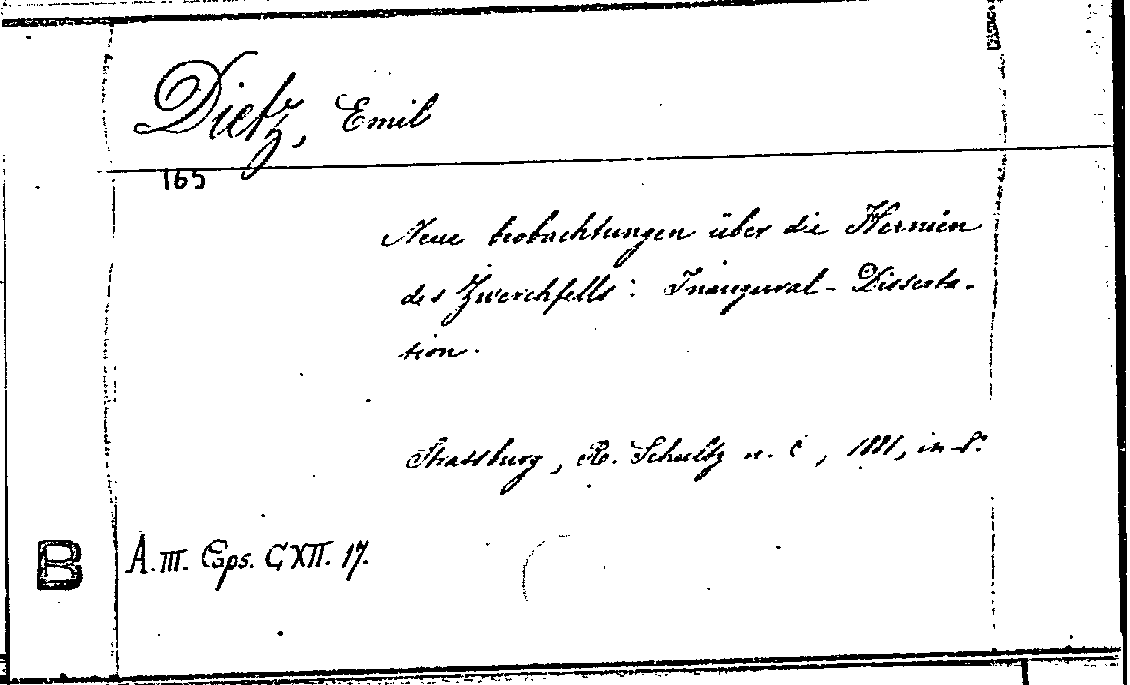 Dietz, Emil
165
Neue Beobachtungen über die Hernien
des Zwerchfells: Inaugural-Disserta-
tion.
Strassburg, R. Schultz u. C, 1881, in-8°
B A.III. Caps. CXII. 17.